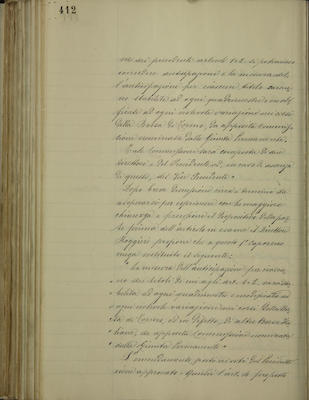 412
nei precedenti articoli 1 e 2 si potranno
concedere anticipazioni e la misura del
l'anticipazione per ciascun titolo saran
no stabilite ad ogni quadrimestre e modi
ficate ad ogni notevole variazione nei corsi
della Borsa di Torino, da apposita Commis
sione nominata dalla Giunta Permanente.
Tale Commissione sarà composta di due
Direttori e del Presidente od, in caso di assenza
di questi, del Vice Presidente.
Dopo breve discussione circa i termini da
adoperarsi per esprimere con la maggiore
chiarezza e precisione il dispositivo della par
te prima dell'articolo in esame il Direttore
Ruggieri propone che a questo 1° capoverso
venga sostituito il seguente:
"La misura dell'anticipazione per ciascu
no dei titoli di cui agli art. 1 e 2 sarà sta
bilita ad ogni quadrimestre e modificata ad
ogni notevole variazione nei corsi della Bor
sa di Torino, od in difetto, di altre Borse Ita
liane, da apposita Commissione nominata
dalla Giunta Permanente."
L'emendamento, posto ai voti dal Presidente
viene approvato. Quindi l'art.